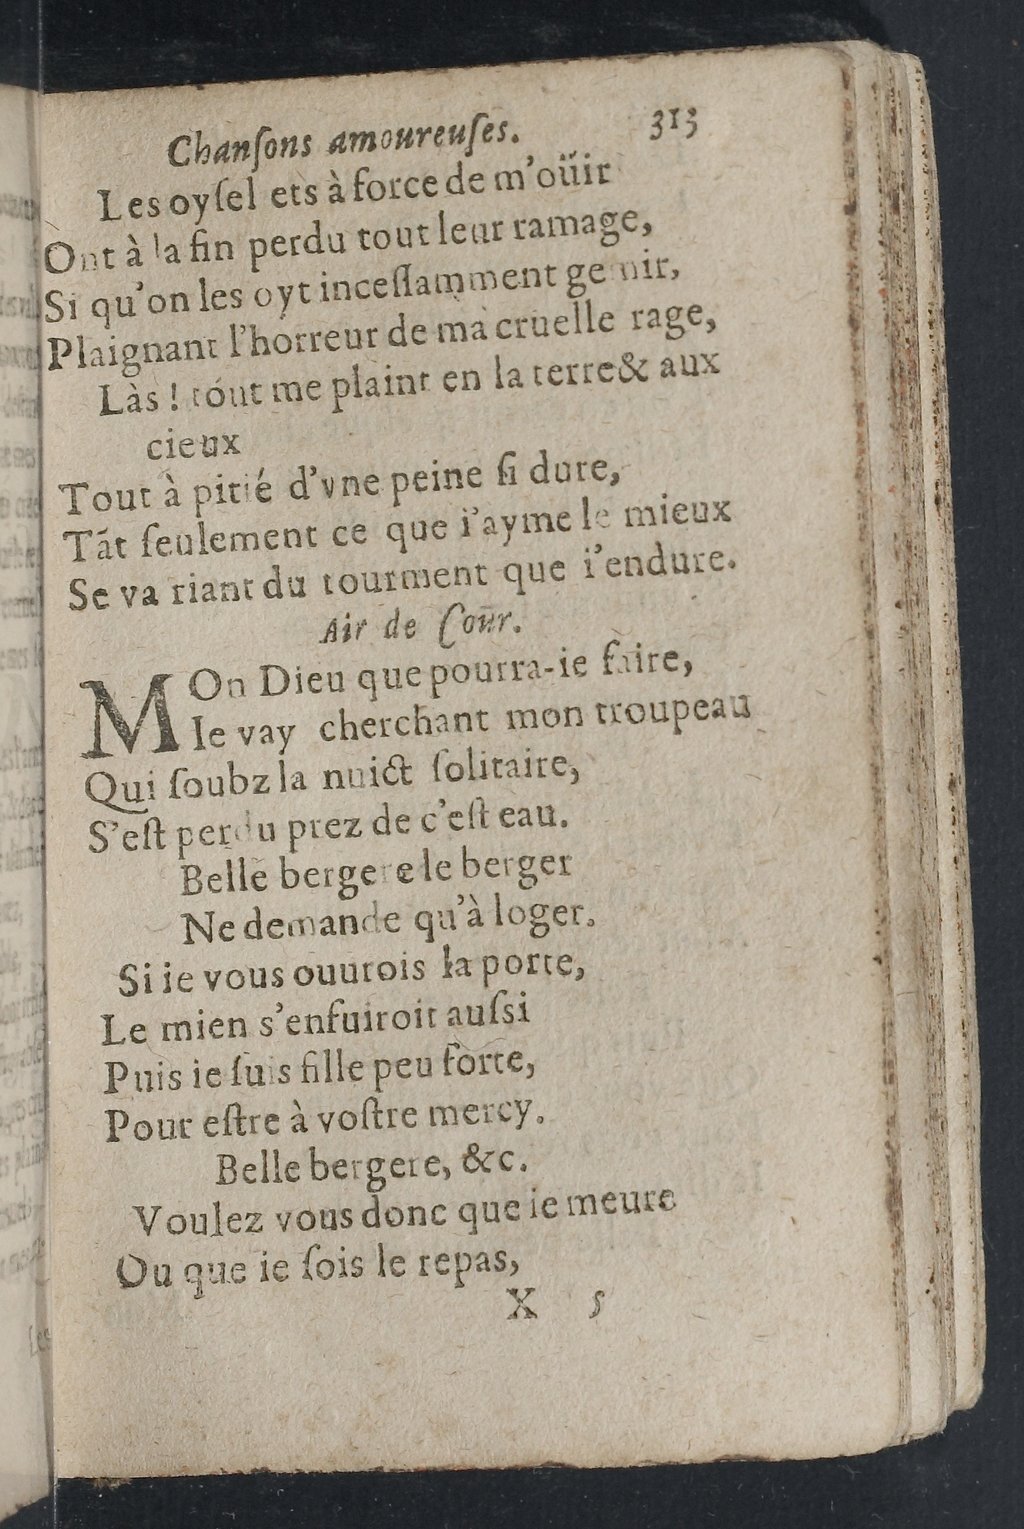 Chanſons amoureuſes. 313
Les oyſel ets à force de m'oüir
Ont à la fin perdu tout leur ramage,
Si qu'on les oyt inceſſamment gemir,
Plaignant l'horreur de ma cruelle rage,
Làs ! tout me plaint en la terre & aux
cieux
Tout à pitié d'vne peine ſi dure,
Tãt ſeulement ce que i'ayme le mieux
Se va riant du tourment que i'endure.
Air de Cour.
MOn Dieu que pourra-ie faire,
Ie vay cherchant mon troupeau
Qui ſoubz la nuict ſolitaire,
S'eſt perdu prez de c'eſt eau.
Belle bergere le berger
Ne demande qu'à loger.
Si ie vous ouurois la porte,
Le mien s'enfuiroit auſsi
Puis ie ſuis fille peu forte,
Pour eſtre à voſtre mercy.
Belle bergere, &c.
Voulez vous donc que ie meure
Ou que ie ſois le repas,
X 5